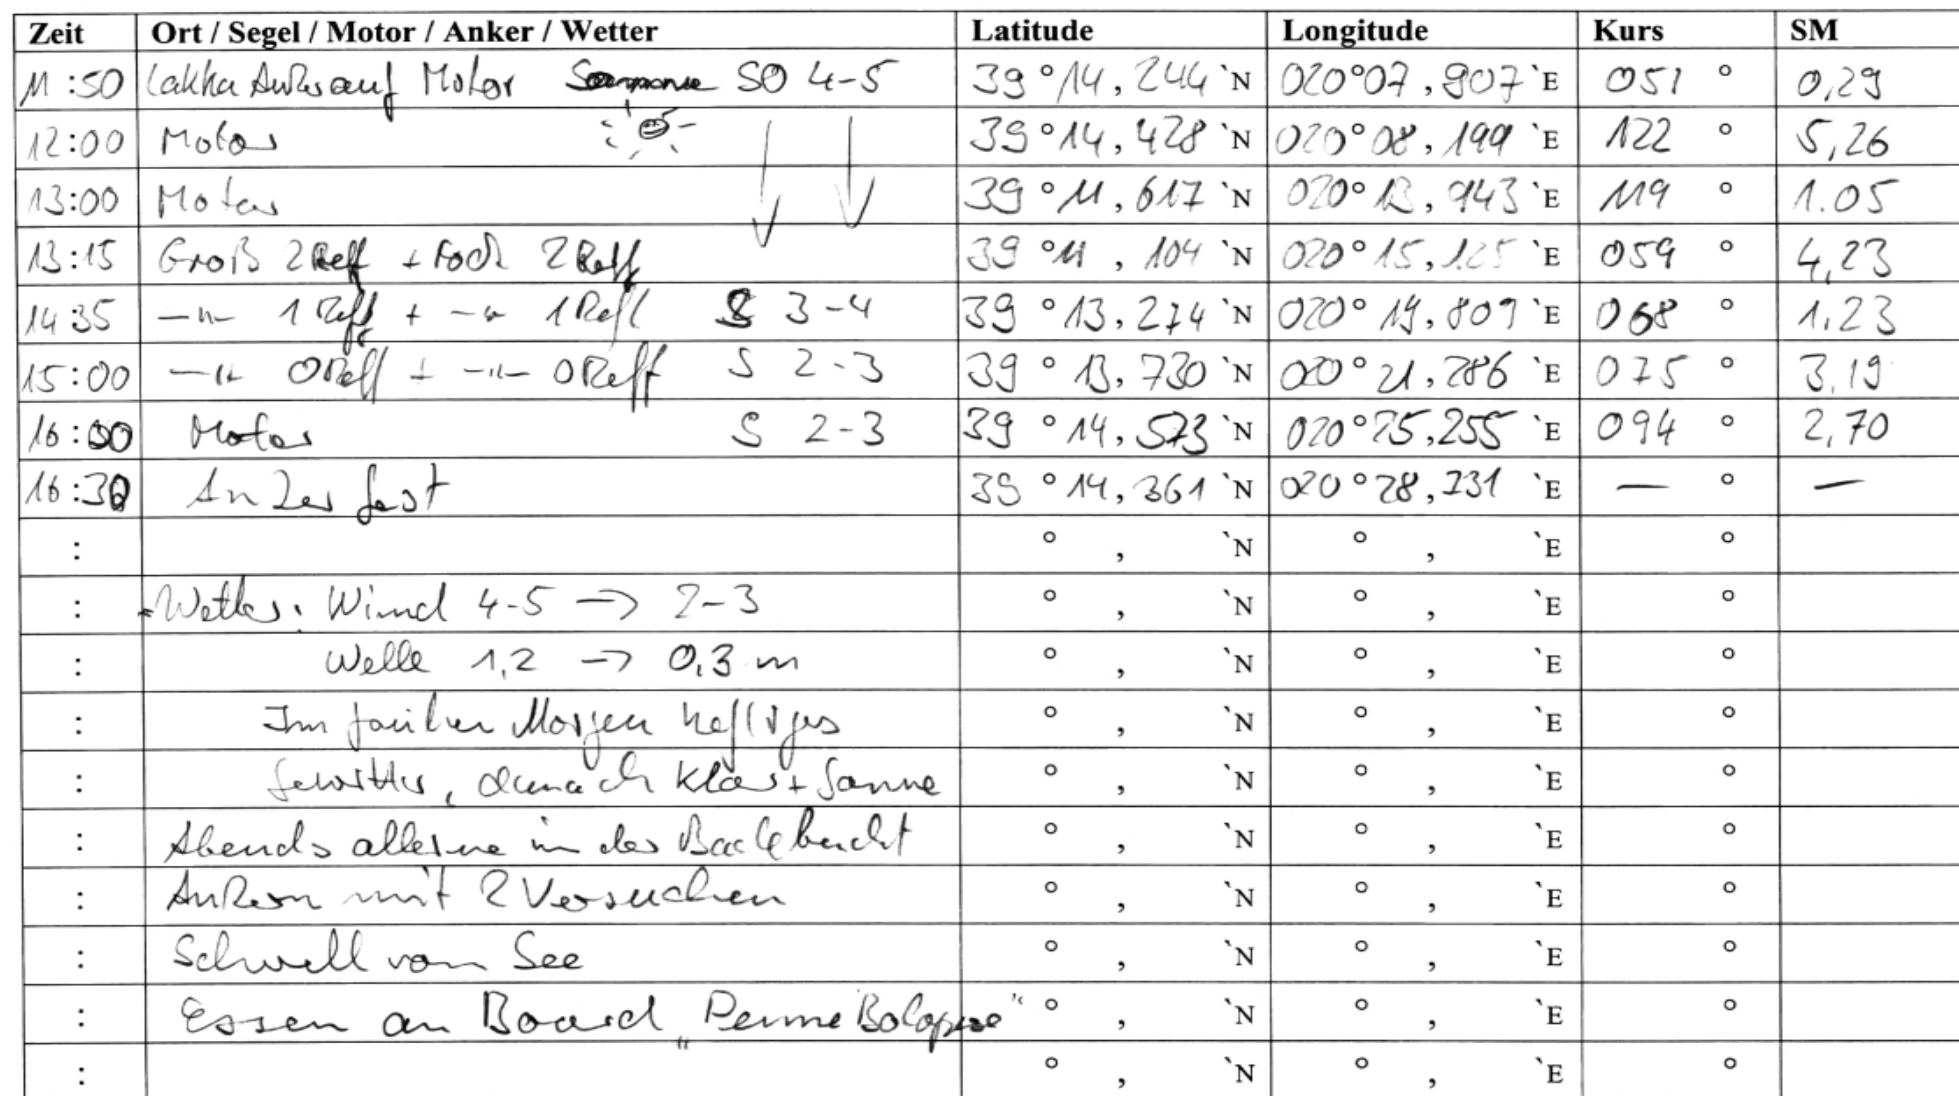 Zeit Ort / Segel / Motor / Anker / Wetter Latitude Longitude Kurs SM
11:50 Lakka Anker auf Motor SO 4-5 39°14,244`N 020°07,907`E 051° 0,29
12:00 Motor 39°14,428`N 020°08,199`E 122° 5,26
13:00 Motor 39°11,617`N 020°13,943`E 119° 1.05
13:15 Groß 2 Reff + Fock 2 Reff 39°11,104`N 020°15,125`E 059° 4,23
14 35 —"— 1 Reff + —"— 1 Reff S 3-4 39°13,274`N 020°19,809`E 068° 1,23
15:00 —"— 0 Reff + —"— 0 Reff S 2-3 39°13,730`N 020°21,286`E 075° 3,19
16:00 Motor S 2-3 39°14,573`N 020°25,255`E 094° 2,70
16:30 Anker fest 39°14,361`N 020°28,231`E — ° —
: ° , `N ° , `E °
: Wetter: Wind 4-5 → 2-3 ° , `N ° , `E °
: Welle 1,2 → 0,3 m ° , `N ° , `E °
: Im frühen Morgen heftiges ° , `N ° , `E °
: Gewitter, danach klar + Sonne ° , `N ° , `E °
: Abends alleine in der Badebucht ° , `N ° , `E °
: Ankern mit 2 Versuchen ° , `N ° , `E °
: Schwell vom See ° , `N ° , `E °
: Essen an Board „Penne Bolognese" ° , `N ° , `E °
: ° , `N ° , `E °